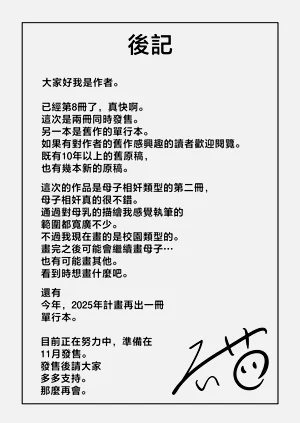 後記
大家好我是作者。
已經第8冊了，真快啊。
這次是兩冊同時發售。
另一本是舊作的單行本。
如果有對作者的舊作感興趣的讀者歡迎閱覽。
既有10年以上的舊原稿，
也有幾本新的原稿。
這次的作品是母子相奸類型的第二冊，
母子相奸真的很不錯。
通過對母乳的描繪我感覺執筆的
範圍都寬廣不少。
不過我現在畫的是校園類型的。
畫完之後可能會繼續畫母子…
也有可能畫其他。
看到時想畫什麼吧。
還有
今年，2025年計畫再出一冊
單行本。
目前正在努力中，準備在
11月發售。
發售後請大家
多多支持。
那麼再會。